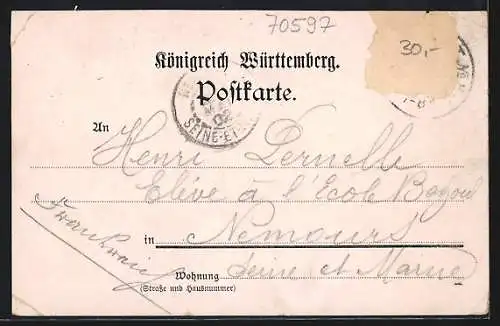 70597
30,-
Königreich Württemberg.
Postkarte.
02
SEINE-ET-
An
Henri Pernelle
Elève à l'Ecole
Nemours
in
Frankreich
Seine et Marne
Wohnung
(Straße und Hausnummer)